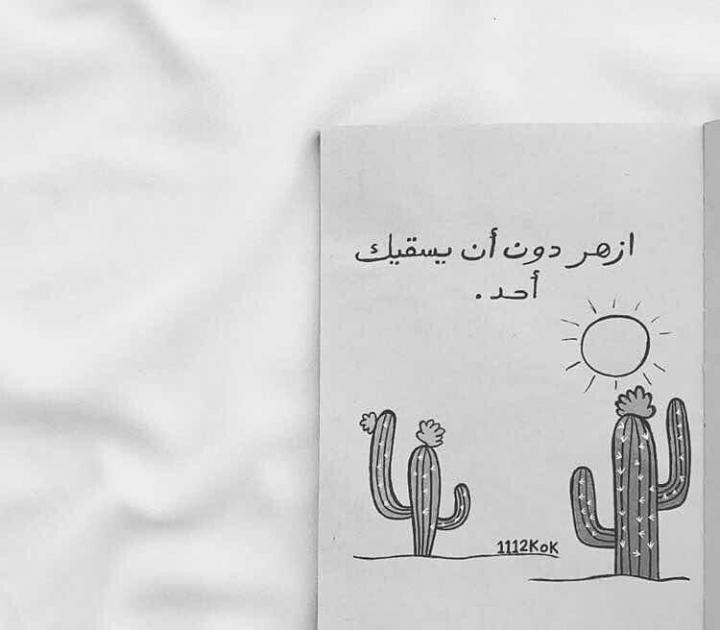 ازهر دون أن يسقيك
أحد .
1112KoK